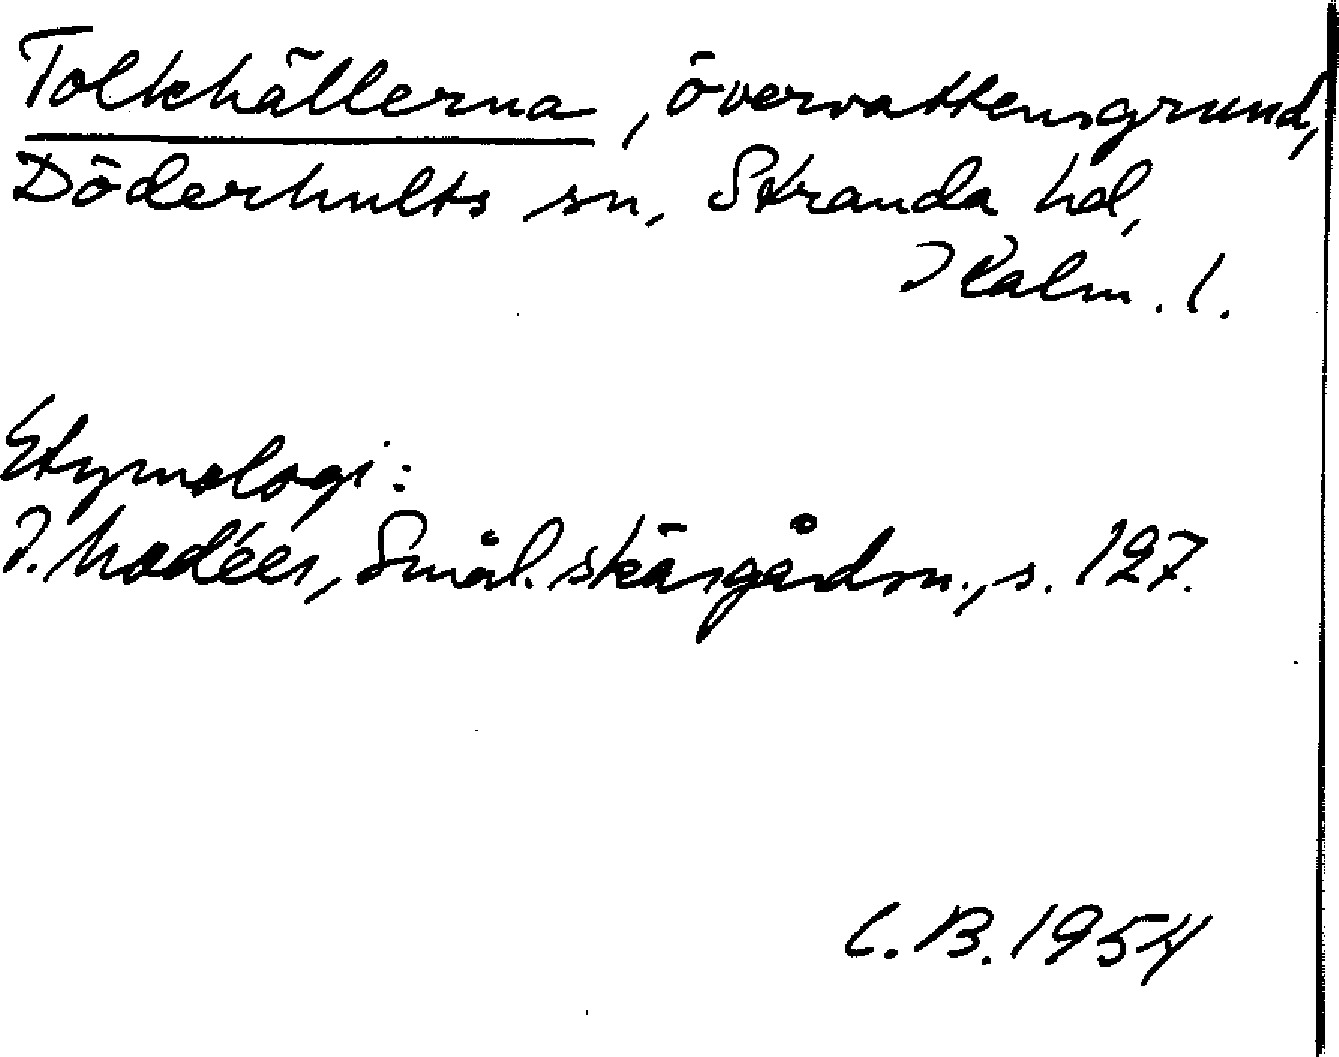 Tolkhällerna, övervattensgrund,
Döderhults sn, Stranda hd,
Kalm. l.
Etymologi:
I. Modéer, Smål. skärgårdsn., s. 127.
C. B. 1954